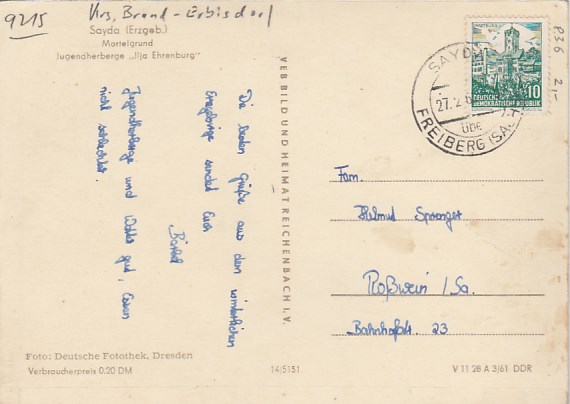 9215
Krs. Brand-Erbisdorf
Sayda (Erzgeb.)
Mortelgrund
Jugendherberge „Ilja Ehrenburg"
Die besten Grüße aus dem winterlichen
Erzgebirge sendet Euch
Bärbel
Jugendherberge und Wetter gut, Essen
nicht schlechter.
Foto: Deutsche Fotothek, Dresden
Verbraucherpreis 0.20 DM
VEB BILD UND HEIMAT REICHENBACH I. V.
14/5151
P36 2,-
WARTBURG
10
DEUTSCHE
DEMOKRATISCHE REPUBLIK
SAYDA
27.2.
ÜBER
FREIBERG (SACHS)
Fam.
Helmut Sprenger
Roßwein / Sa.
Bahnhofstr. 23
V 11 28 A 3/61 DDR